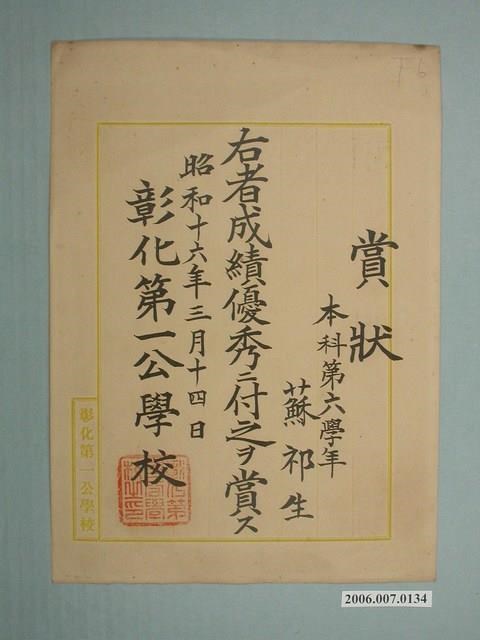 賞狀
本科第六學年
蘇祁生
右者成績優秀ニ付之ヲ賞ス
昭和十六年三月十四日
彰化第一公學校
彰化第一公學校
2006.007.0134